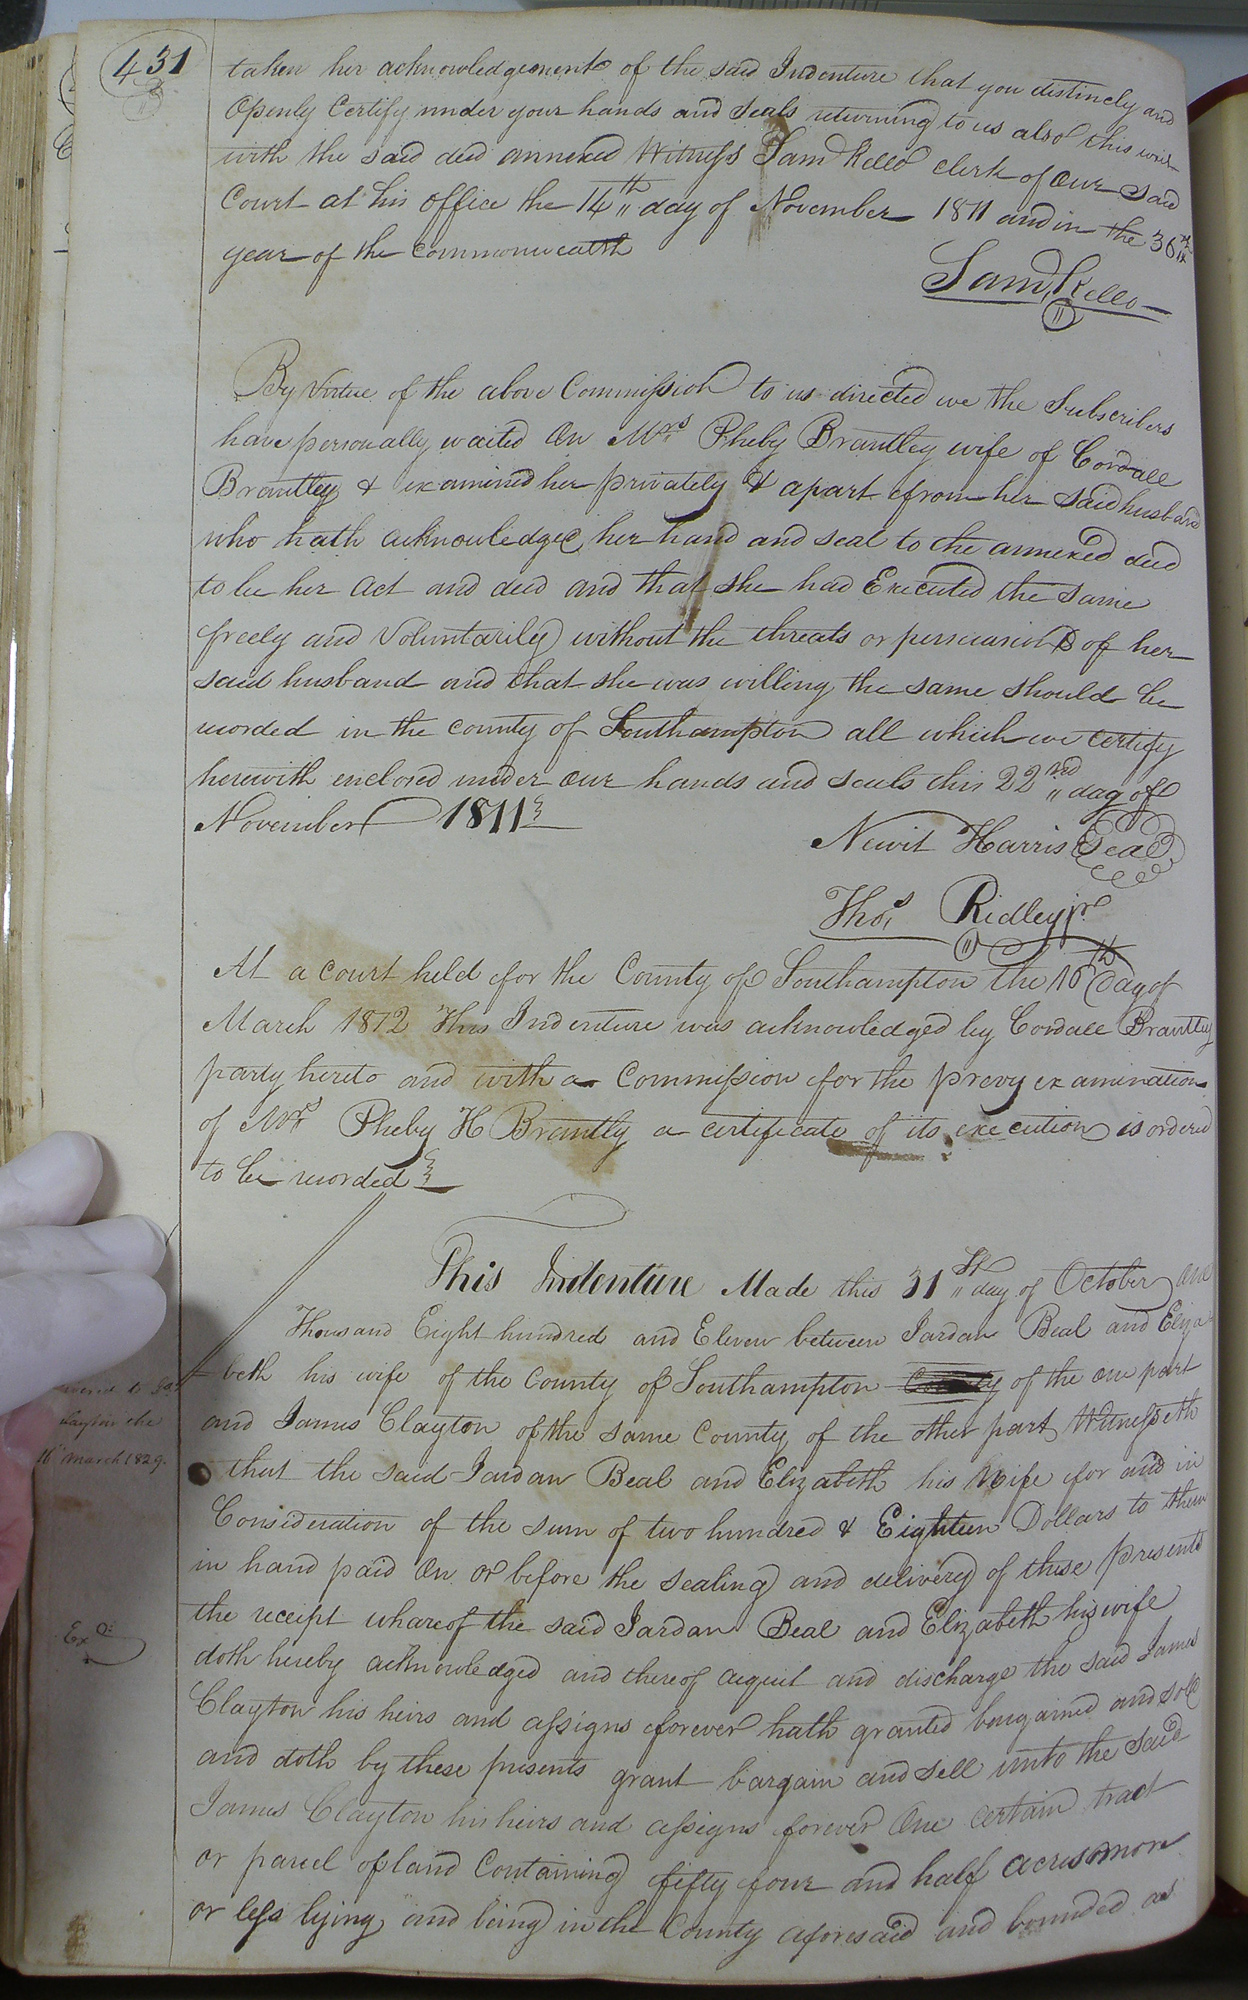 431
taken her acknowledgement of the said Indenture that you distinctly and
Openly Certify under your hands and seals returning to us also this writ
with the said deed annexed Witness Sam Kello clerk of our said
Court at his office the 14th day of November 1811 and in the 36th
year of the commonwealth
Saml Kello
By Virtue of the above Commission to us directed we the Subscribers
have personally waited On Mrs Pheby Brantley wife of Cordall
Brantley & examined her privately & apart from her said husband
who hath acknowledged her hand and seal to the annexed deed
to be her Act and deed and that she had Executed the same
freely and Voluntarily without the threats or persuasions of her
said husband and that she was willing the same should be
recorded in the county of Southampton all which we certify
herewith enclosed under our hands and seals this 22nd day of
November 1811
Newit Harris Seal
Thos Ridley jr
At a court held for the County of Southampton the 16th day of
March 1812 This Indenture was acknowledged by Cordall Brantley
party hereto and with a Commission for the prevy examination
of Mrs Pheby H Brantly a certificate of its execution is ordered
to be recorded
This Indenture Made this 31st day of October One
Thousand Eight hundred and Eleven between Jardan Beal and Eliza
beth his wife of the County of Southampton County of the one part
and James Clayton of the same County of the other part Witnesseth
that the said Jardan Beal and Elizabeth his Wife for and in
Consideration of the sum of two hundred & Eighteen Dollars to them
in hand paid On or before the sealing and delivery of these presents
the receipt whareof the said Jardan Beal and Elizabeth his wife
doth hereby acknowledged and thereof acquit and discharge the said James
Clayton his heirs and assigns forever hath granted bargained and sold
and doth by these presents grant bargain and sell unto the said
James Clayton his heirs and assigns forever One certain tract
or parcel of land Containing fifty four and half acres more
or less lying and being in the County aforesaid and bounded as
16 March 1829.
Exd